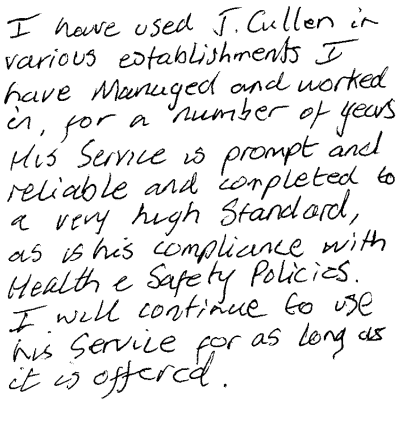 I have used J. Cullen in
various establishments I
have Managed and worked
in, for a number of years
His Service is prompt and
reliable and completed to
a very high Standard,
as is his compliance with
Health & Safety Policies.
I will continue to use
his Service for as long as
it is offered.